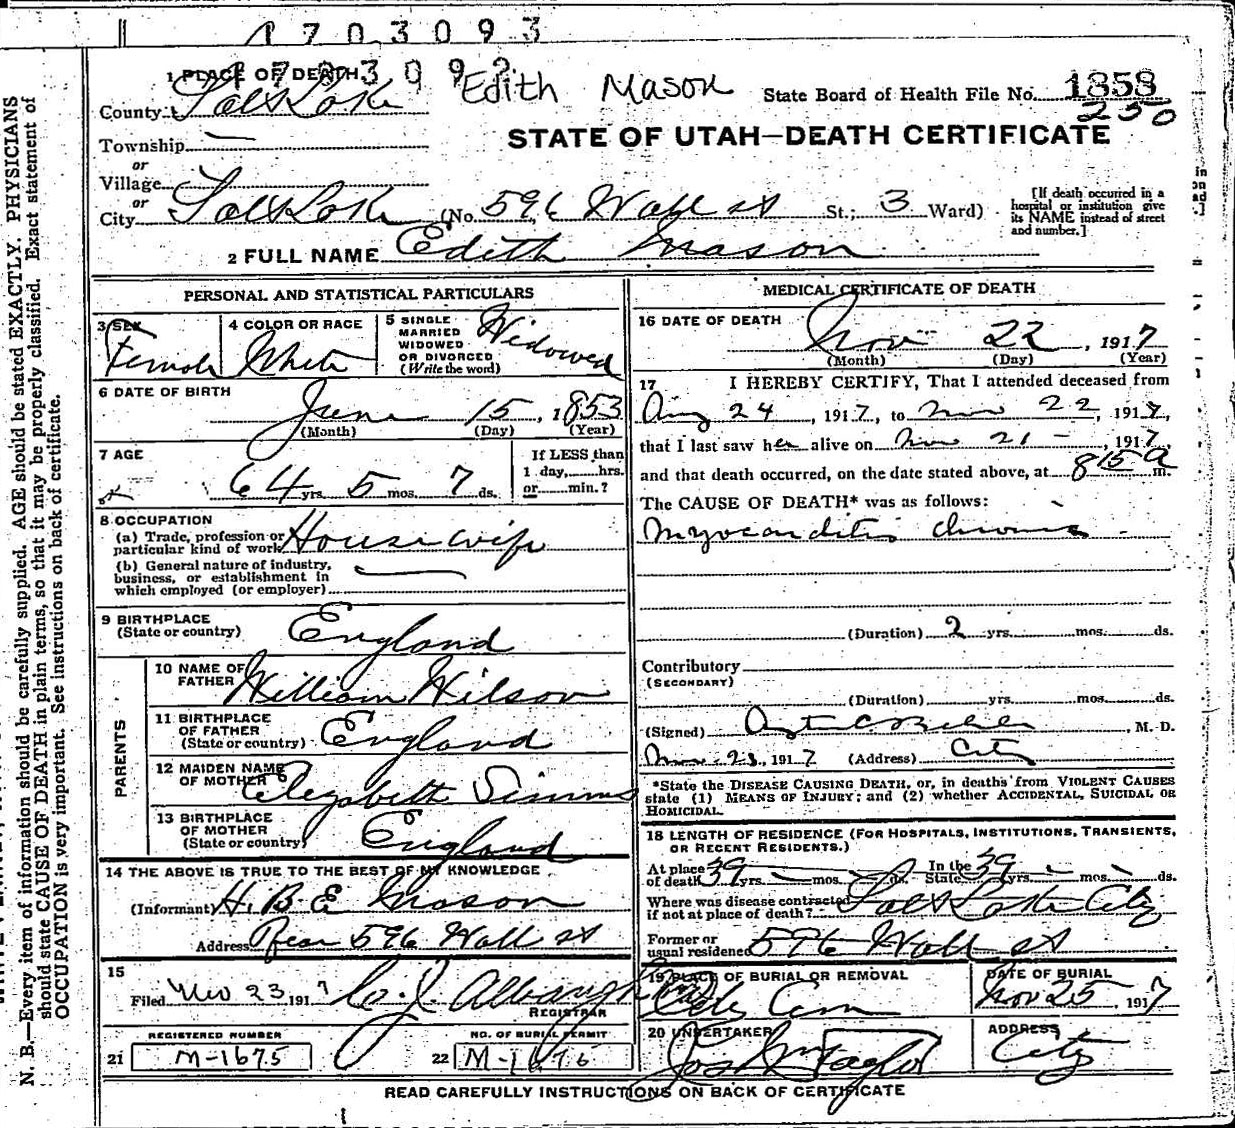 1703093
170309
1 PLACE OF DEATH
Edith Mason
State Board of Health File No. 1858
250
County Salt Lake
STATE OF UTAH—DEATH CERTIFICATE
Township —
or
Village
or
City Salt Lake (No. 596 Wall st St.; 3 Ward)
[If death occurred in a
hospital or institution give
its NAME instead of street
and number.]
2 FULL NAME Edith Mason
PERSONAL AND STATISTICAL PARTICULARS
3 SEX
Female
4 COLOR OR RACE
White
5 SINGLE
MARRIED
WIDOWED
OR DIVORCED
(Write the word)
Widowed
6 DATE OF BIRTH
June 15, 1853
(Month) (Day) (Year)
7 AGE
64 yrs. 5 mos. 7 ds.
If LESS than
1 day, hrs.
or min.?
8 OCCUPATION
(a) Trade, profession or
particular kind of work Housewife
(b) General nature of industry,
business, or establishment in
which employed (or employer)
9 BIRTHPLACE
(State or country) England
PARENTS
10 NAME OF
FATHER William Wilson
11 BIRTHPLACE
OF FATHER
(State or country) England
12 MAIDEN NAME
OF MOTHER Elizabeth Simms
13 BIRTHPLACE
OF MOTHER
(State or country) England
14 THE ABOVE IS TRUE TO THE BEST OF MY KNOWLEDGE
(Informant) H. B. E. Mason
Address Rear 596 Wall st
15
Filed Nov 23 1917
REGISTRAR
REGISTERED NUMBER
21 M-1675
NO. OF BURIAL PERMIT
22 M-1675
MEDICAL CERTIFICATE OF DEATH
16 DATE OF DEATH
Nov 22, 1917
(Month) (Day) (Year)
17 I HEREBY CERTIFY, That I attended deceased from
Aug 24, 1917, to Nov 22, 1917,
that I last saw her alive on Nov 21 —, 1917,
and that death occurred, on the date stated above, at 815 a m.
The CAUSE OF DEATH* was as follows:
Myocarditis chronic
(Duration) 2 yrs. mos. ds.
Contributory
(SECONDARY)
(Duration) yrs. mos. ds.
(Signed) , M. D.
Nov 23, 1917 (Address) City
*State the DISEASE CAUSING DEATH, or, in deaths from VIOLENT CAUSES
state (1) MEANS OF INJURY; and (2) whether ACCIDENTAL, SUICIDAL OR
HOMICIDAL.
18 LENGTH OF RESIDENCE (FOR HOSPITALS, INSTITUTIONS, TRANSIENTS,
OR RECENT RESIDENTS.)
At place
of death 39 yrs. — mos. — ds.
In the
State 39 yrs. — mos. — ds.
Where was disease contracted
if not at place of death? Salt Lake City
Former or
usual residence 596 Wall st
19 PLACE OF BURIAL OR REMOVAL
City Cem
DATE OF BURIAL
Nov 25, 1917
20 UNDERTAKER
Jos Wm Taylor
ADDRESS
City
READ CAREFULLY INSTRUCTIONS ON BACK OF CERTIFICATE
N. B.—Every item of information should be carefully supplied. AGE should be stated EXACTLY. PHYSICIANS
should state CAUSE OF DEATH in plain terms, so that it may be properly classified. Exact statement of
OCCUPATION is very important. See instructions on back of certificate.